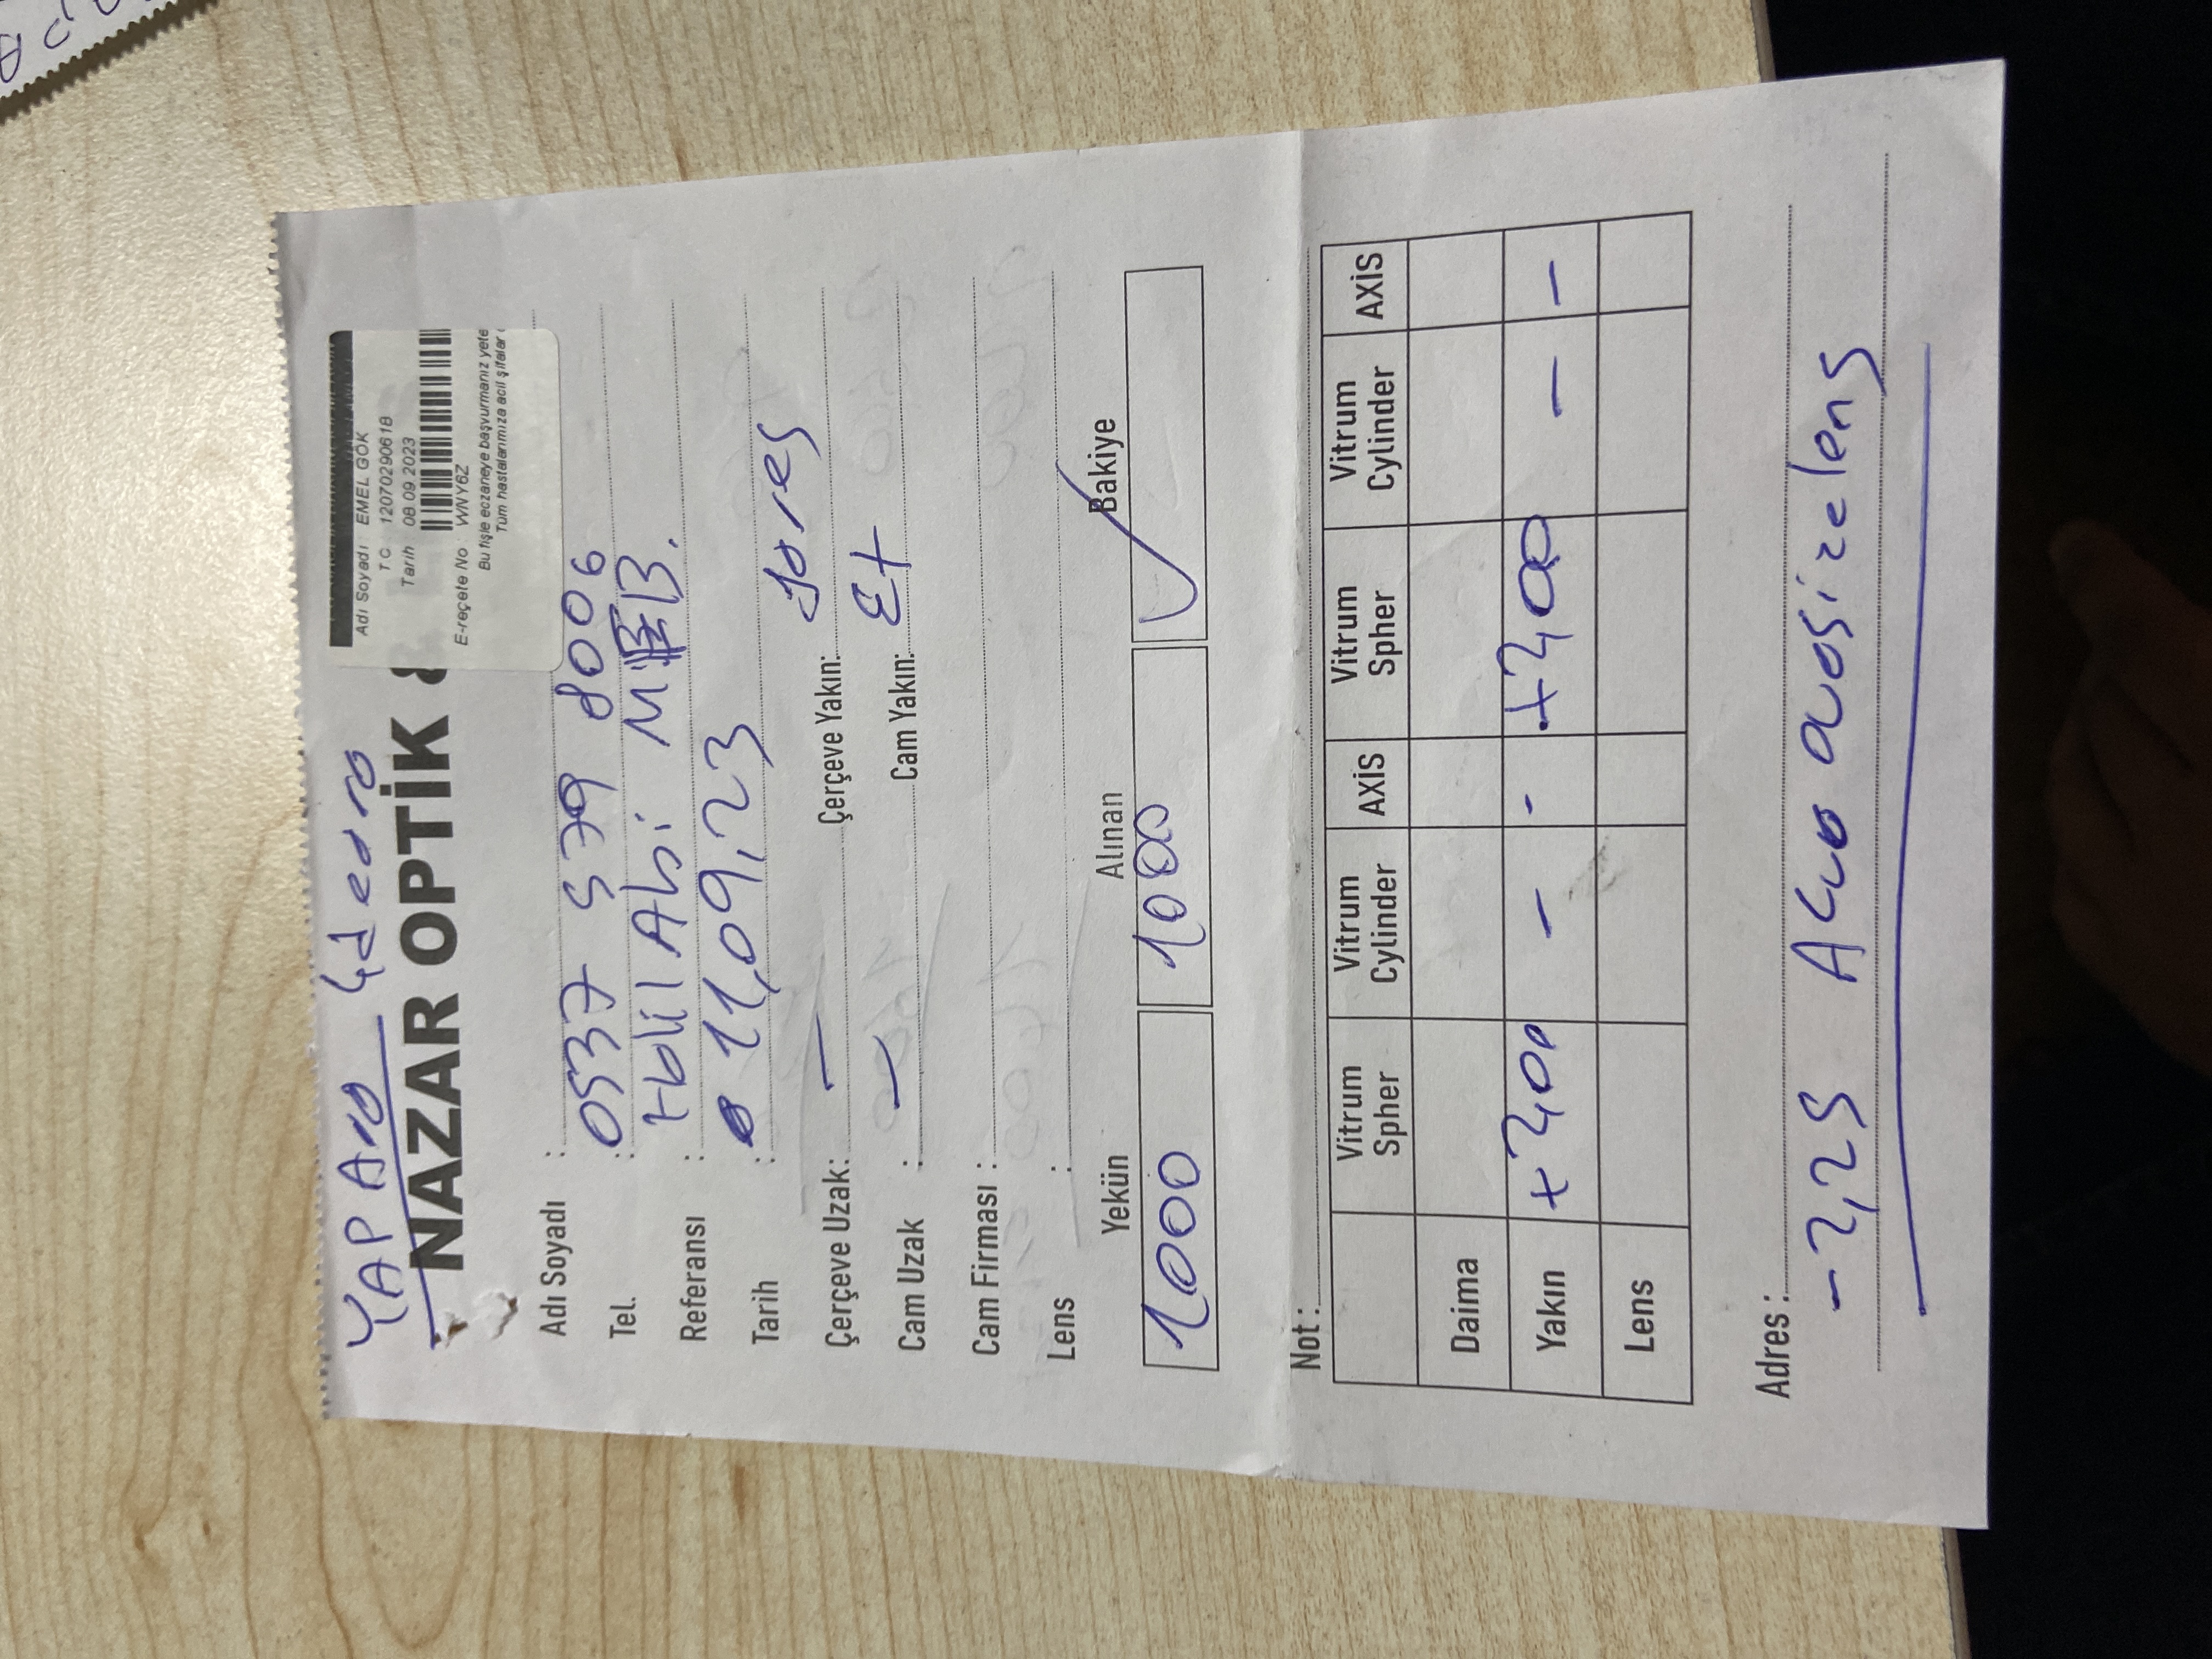 YAP Ara
NAZAR OPTİK &
Adı Soyadı : EMEL GÖK
T.C 12070290618
Tarih 08.09.2023
E-reçete No WNY6Z
Bu fişle eczaneye başvurmanız yete
Tüm hastalarımıza acil şifalar
Adı Soyadı :
Tel. : 0537 579 8006
Referansı : Halil Abi MEB.
Tarih : 11,09,23
Çerçeve Uzak: — Çerçeve Yakın:
Cam Uzak : — Cam Yakın:
Cam Firması :
Lens :
Yekün Alınan Bakiye
1000 1000 ✓
Not :
Vitrum Spher Vitrum Cylinder AXİS Vitrum Spher Vitrum Cylinder AXİS
Daima
Yakın +2,00 - - +2,00 - -
Lens
Adres :
-2,25